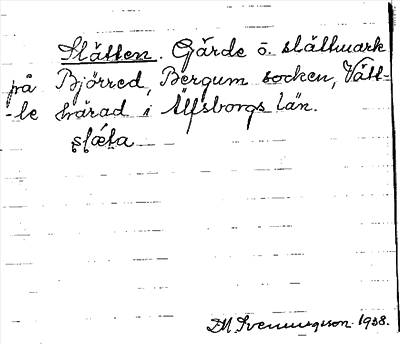 Slätten. Gärde o. slåttmark
på Björred, Bergum socken, Vätt-
-le härad i Älfsborgs län.
slæ̀ta
DM Svenningsson 1938.